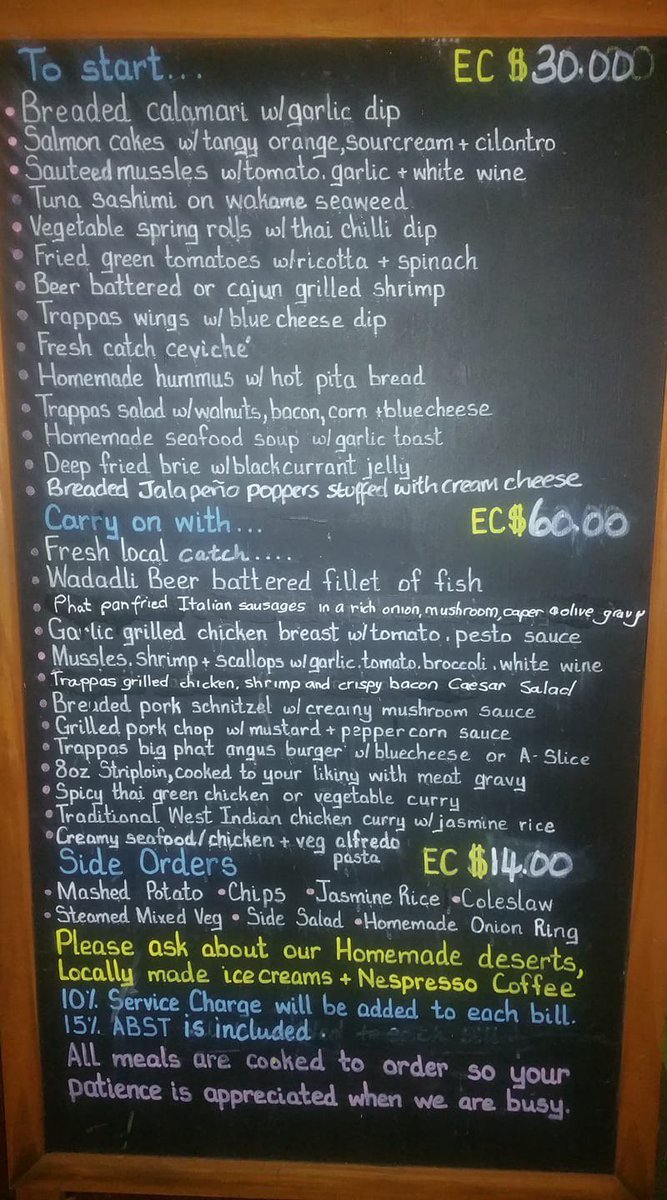 To start... EC $30.00
• Breaded calamari w/garlic dip
• Salmon cakes w/tangy orange, sourcream + cilantro
• Sauteed mussles w/tomato. garlic + white wine
• Tuna sashimi on wakame seaweed
• Vegetable spring rolls w/thai chilli dip
• Fried green tomatoes w/ricotta + spinach
• Beer battered or cajun grilled shrimp
• Trappas wings w/ blue cheese dip
• Fresh catch ceviché
• Homemade hummus w/ hot pita bread
• Trappas salad w/walnuts, bacon, corn + bluecheese
• Homemade seafood soup w/garlic toast
• Deep fried brie w/blackcurrant jelly
• Breaded Jalapeño poppers stuffed with cream cheese
Carry on with... EC $60.00
• Fresh local catch.....
• Wadadli Beer battered fillet of fish
• Phat panfried Italian sausages in a rich onion, mushroom, caper & olive gravy
• Garlic grilled chicken breast w/tomato. pesto sauce
• Mussles. Shrimp + Scallops w/garlic. tomato. broccoli. white wine
• Trappas grilled chicken, shrimp and crispy bacon Caesar Salad
• Breaded pork schnitzel w/creamy mushroom sauce
• Grilled pork chop w/mustard + peppercorn sauce
• Trappas big phat angus burger w/bluecheese or A-Slice
• 8oz Striploin, cooked to your liking with meat gravy
• Spicy thai green chicken or vegetable curry
• Traditional West Indian chicken curry w/jasmine rice
• Creamy seafood/chicken + veg alfredo pasta
Side Orders EC $14.00
• Mashed Potato • Chips • Jasmine Rice • Coleslaw
• Steamed Mixed Veg • Side Salad • Homemade Onion Ring
Please ask about our Homemade deserts,
Locally made icecreams + Nespresso Coffee
10% Service Charge will be added to each bill.
15% ABST is included
All meals are cooked to order so your
patience is appreciated when we are busy.